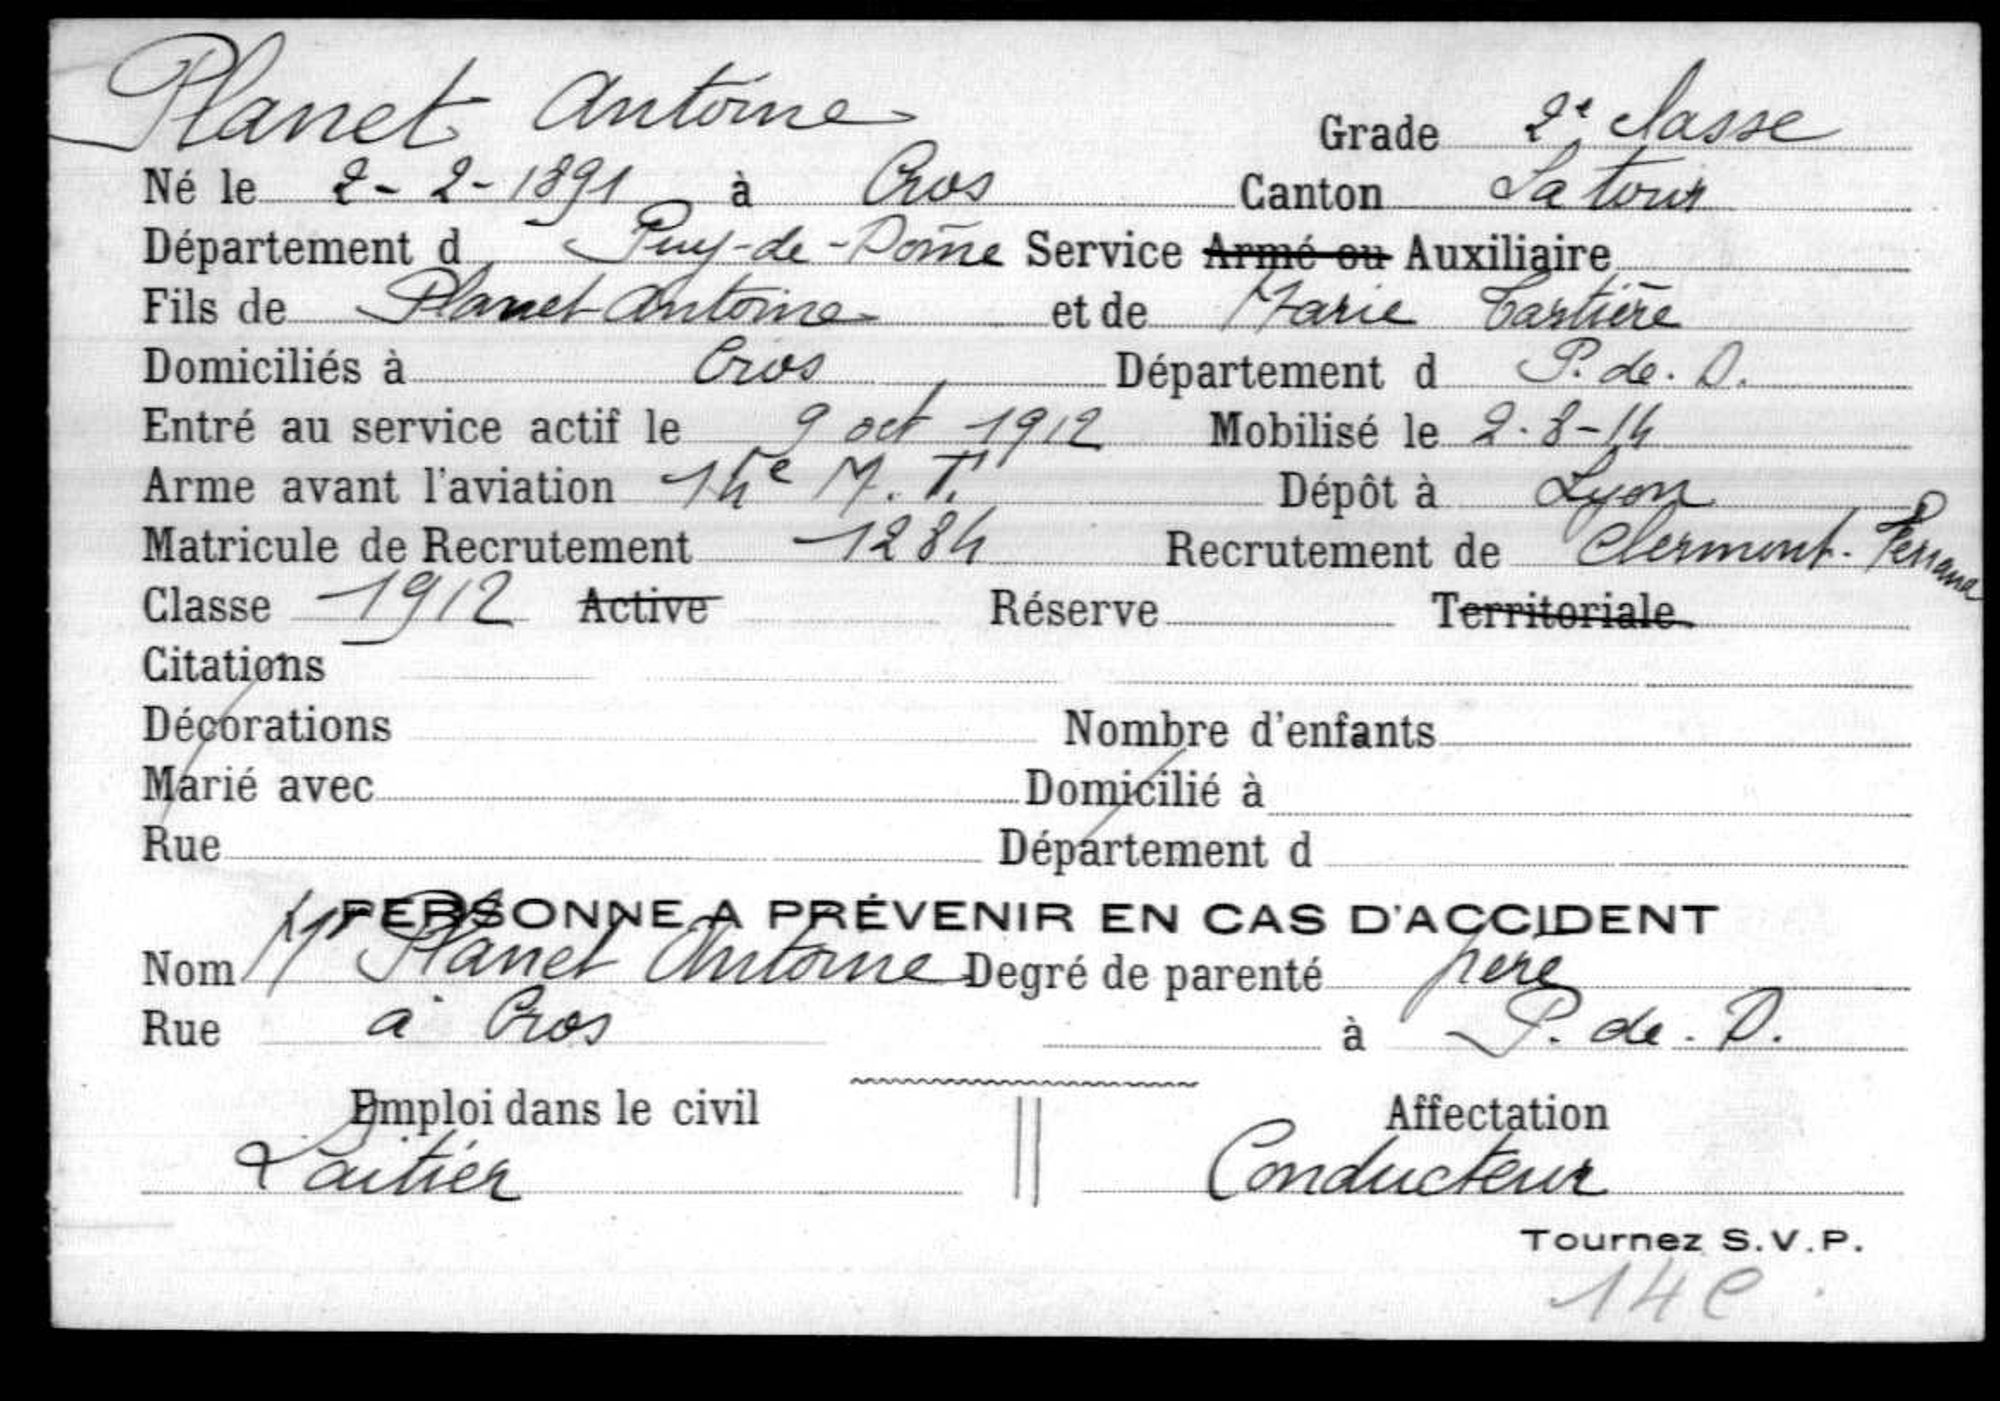 Planet Antoine Grade 2e classe
Né le 2-2-1891 à Cros Canton Latour
Département d Puy-de-Dôme Service Armé ou Auxiliaire
Fils de Planet Antoine et de Marie Tartière
Domiciliés à Cros Département d P. de. D.
Entré au service actif le 9 oct 1912 Mobilisé le 2-8-14
Arme avant l'aviation 14e M. T. Dépôt à Lyon
Matricule de Recrutement 1284 Recrutement de Clermont-Ferrand
Classe 1912 Active Réserve Territoriale
Citations
Décorations Nombre d'enfants
Marié avec Domicilié à
Rue Département d
PERSONNE A PRÉVENIR EN CAS D'ACCIDENT
Nom M Planet Antoine Degré de parenté père
Rue à Cros à P. de. D.
Emploi dans le civil Affectation
Laitier Conducteur
Tournez S.V.P.
14 e